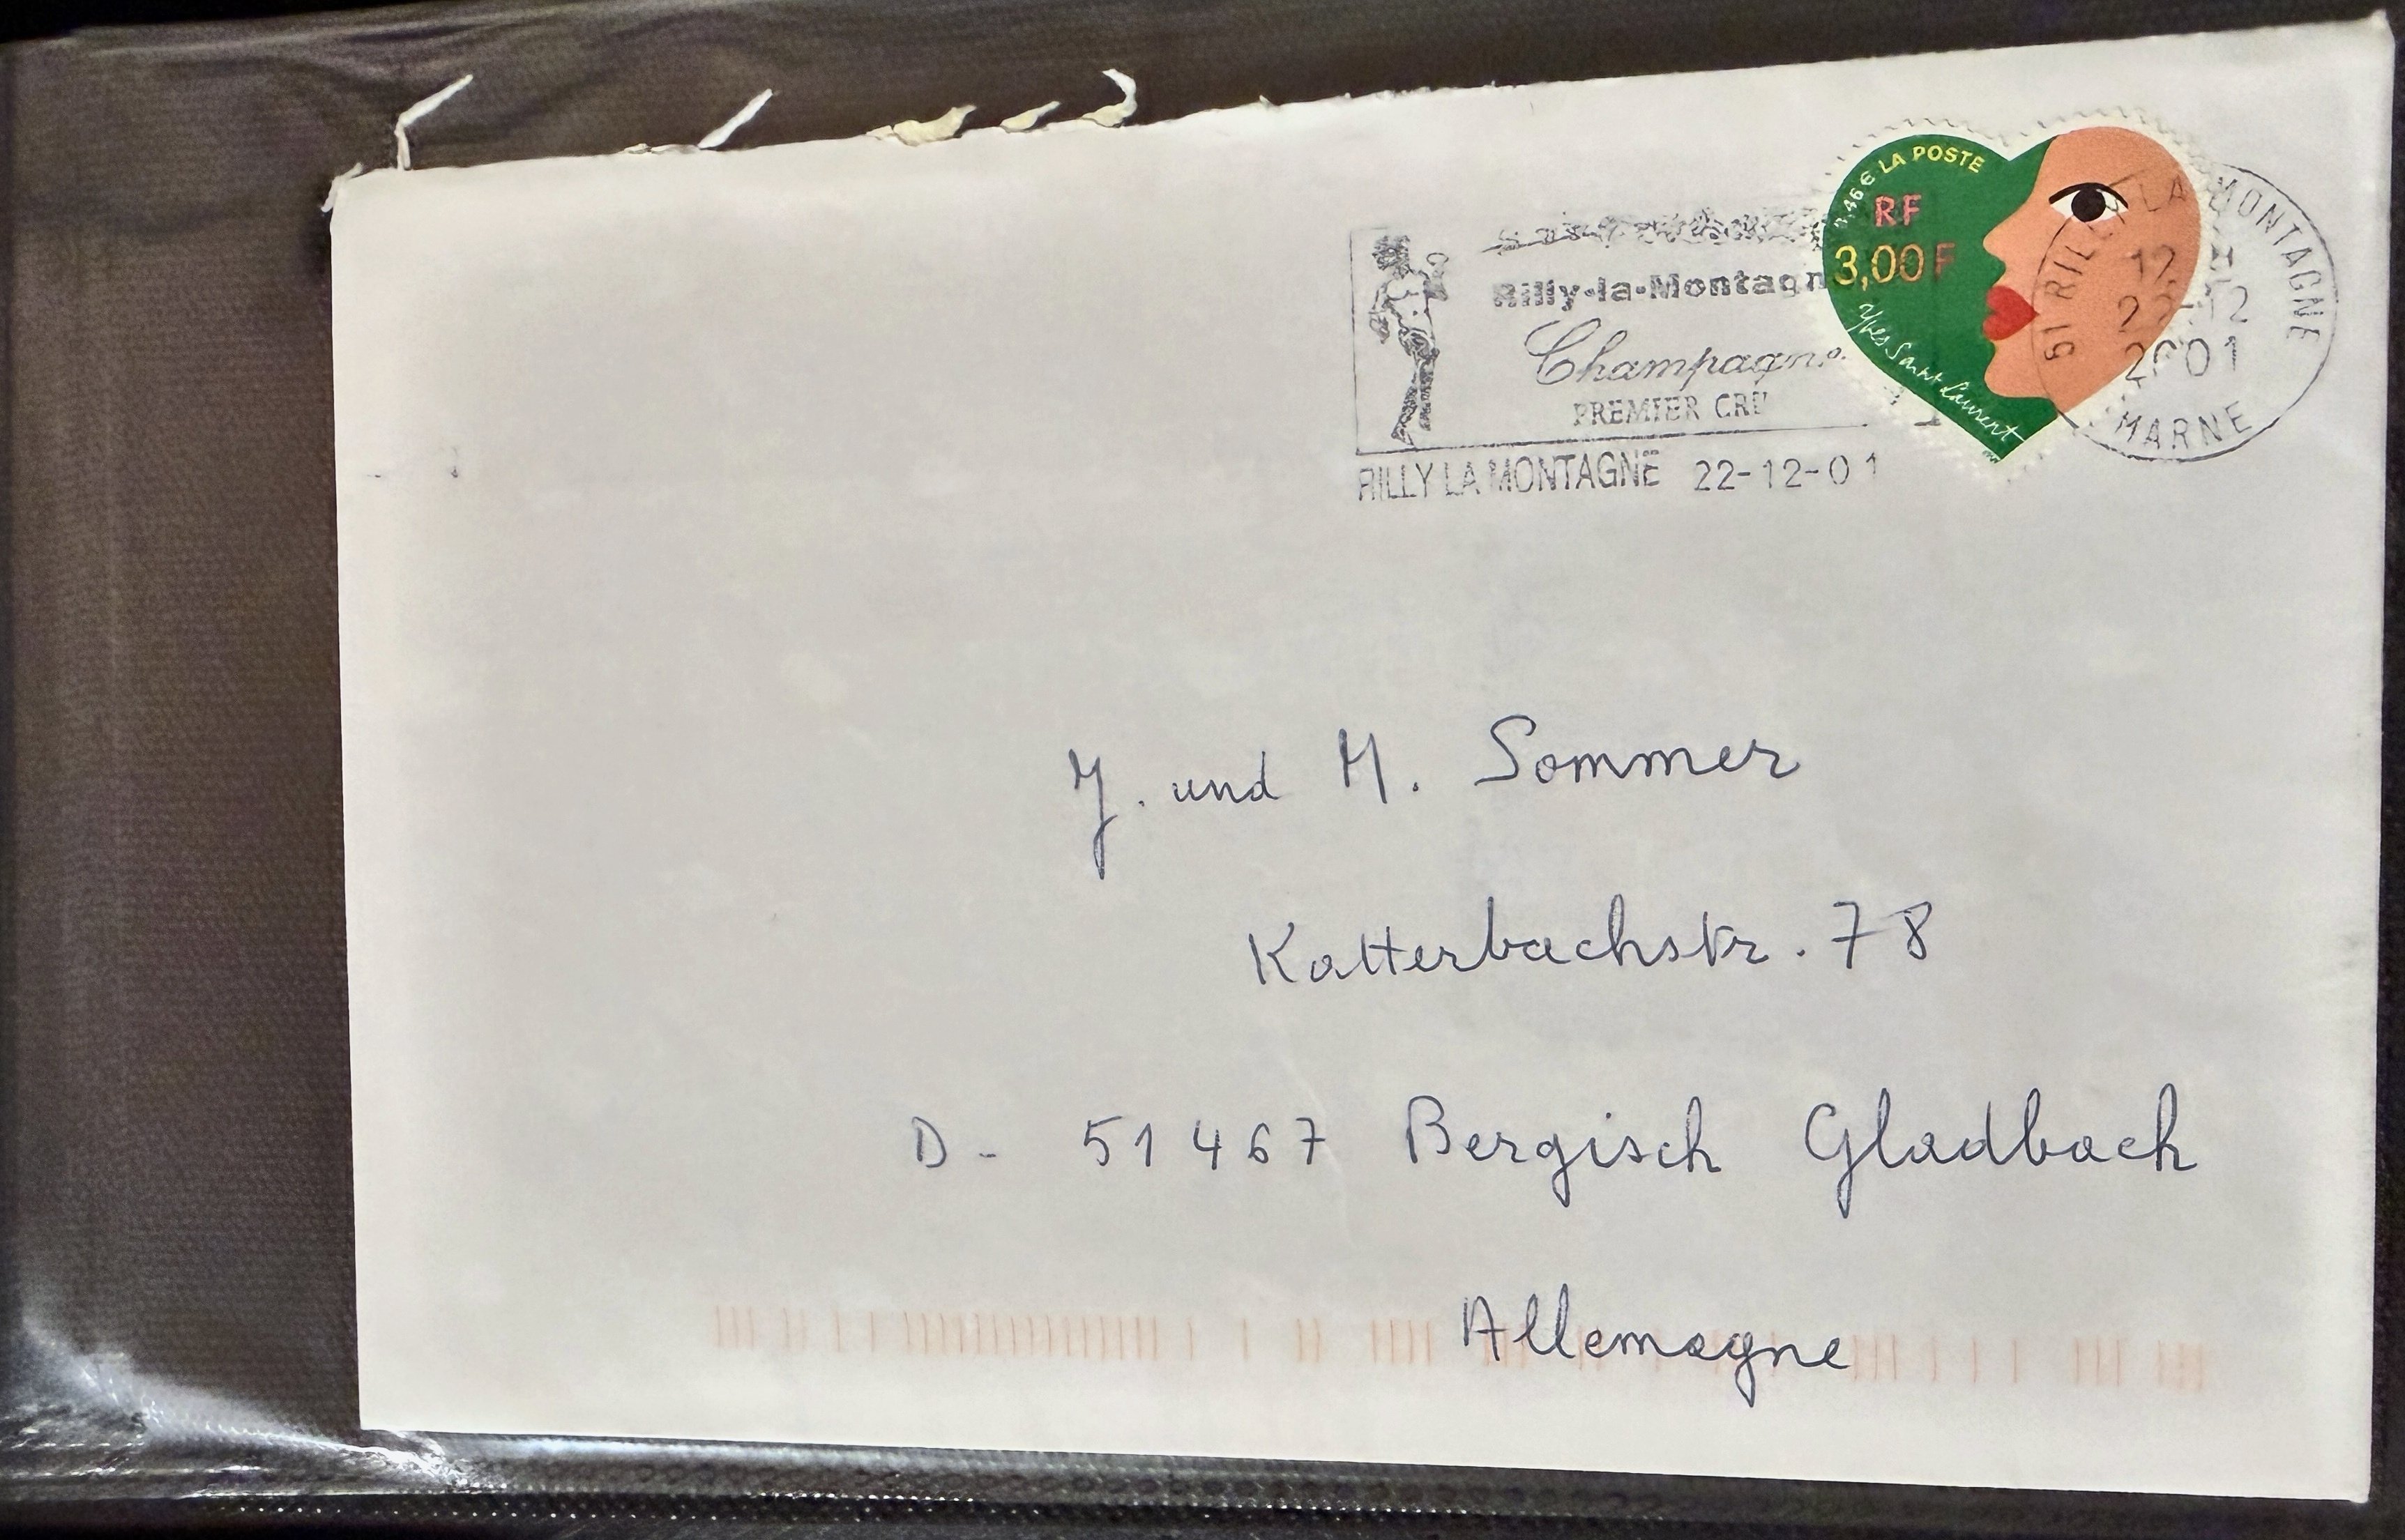 0,46 € LA POSTE
RF
3,00 F
Yves Saint Laurent
51 RILLY LA MONTAGNE
12 H
22-12
2001
MARNE
Rilly-la-Montagne
Champagne
PREMIER CRU
RILLY LA MONTAGNE 22-12-01
J. und M. Sommer
Katterbachstr. 78
D - 51467 Bergisch Gladbach
Allemagne